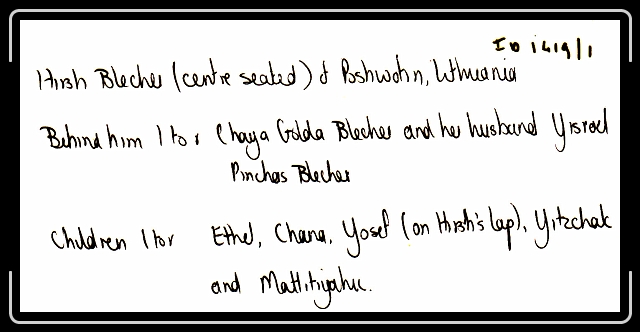 ID 1419/1
Hirsh Blecher (centre seated) of Poshwohn, Lithuania
Behind him l to r Chaya Golda Blecher and her husband Yisroel
Pinchas Blecher
Children l to r Ethel, Chana, Yosef (on Hirsh's lap), Yitzchak
and Mattitiyahu.